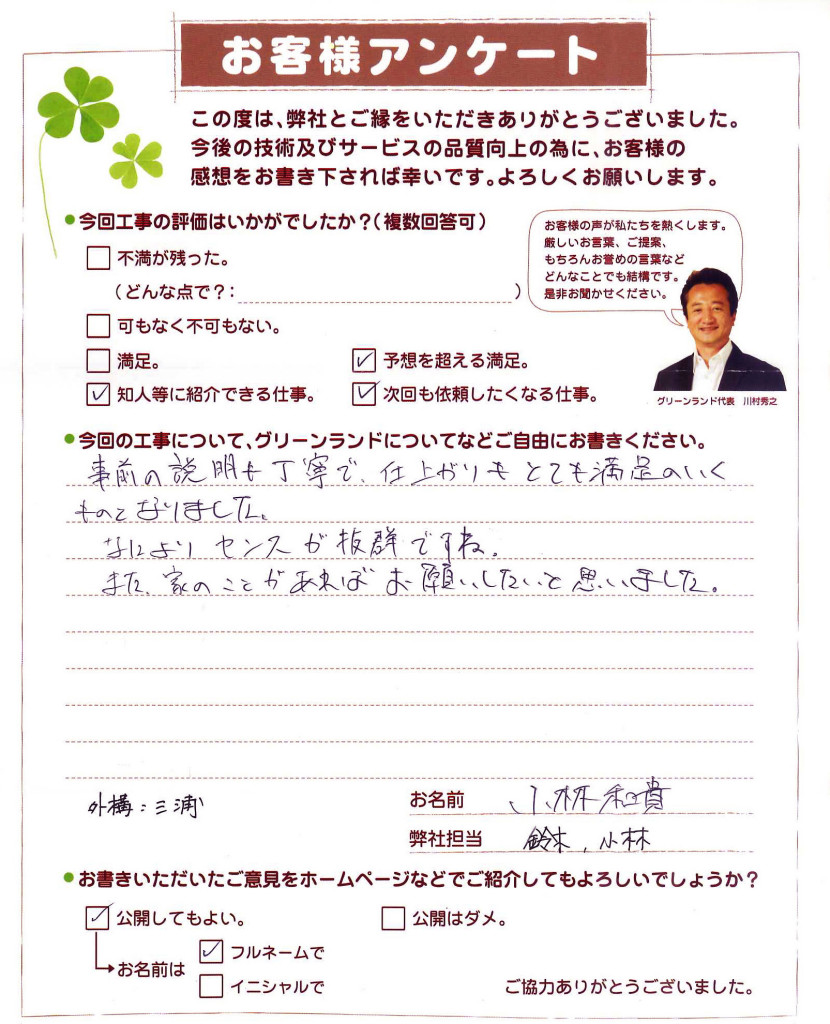 お客様アンケート
この度は、弊社とご縁をいただきありがとうございました。
今後の技術及びサービスの品質向上の為に、お客様の
感想をお書き下されば幸いです。よろしくお願いします。
●今回工事の評価はいかがでしたか?(複数回答可)
お客様の声が私たちを熱くします。
厳しいお言葉、ご提案、
もちろんお誉めの言葉など
どんなことでも結構です。
是非お聞かせください。
□ 不満が残った。
(どんな点で?: )
□ 可もなく不可もない。
□ 満足。 ☑ 予想を超える満足。
☑ 知人等に紹介できる仕事。 ☑ 次回も依頼したくなる仕事。
グリーンランド代表 川村秀之
●今回の工事について、グリーンランドについてなどご自由にお書きください。
事前の説明も丁寧で、仕上がりもとても満足のいく
ものとなりました。
なにより センスが抜群ですね。
また、家のことがあればお願いしたいと思いました。
外構:三浦
お名前 小林和貴
弊社担当 鈴木、小林
●お書きいただいたご意見をホームページなどでご紹介してもよろしいでしょうか?
☑ 公開してもよい。 □ 公開はダメ。
お名前は ☑ フルネームで
□ イニシャルで
ご協力ありがとうございました。